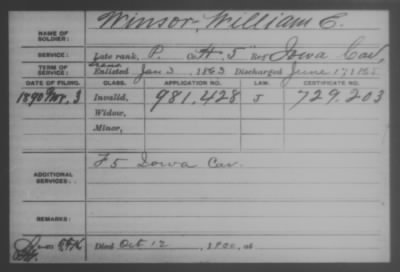 NAME OF SOLDIER: Winsor, William E.
SERVICE: Late rank, P. Co. H, 5 Reg't Iowa Cav,
TERM OF SERVICE: Enlisted Jan 3, 1863 Discharged June 17, 1865
DATE OF FILING. CLASS. APPLICATION NO. LAW. CERTIFICATE NO.
1890 3 Invalid, 981.428 J 729.203
Widow,
Minor,
ADDITIONAL SERVICES: F 5 Iowa Cav.
REMARKS:
Died Oct 12, 1900, at